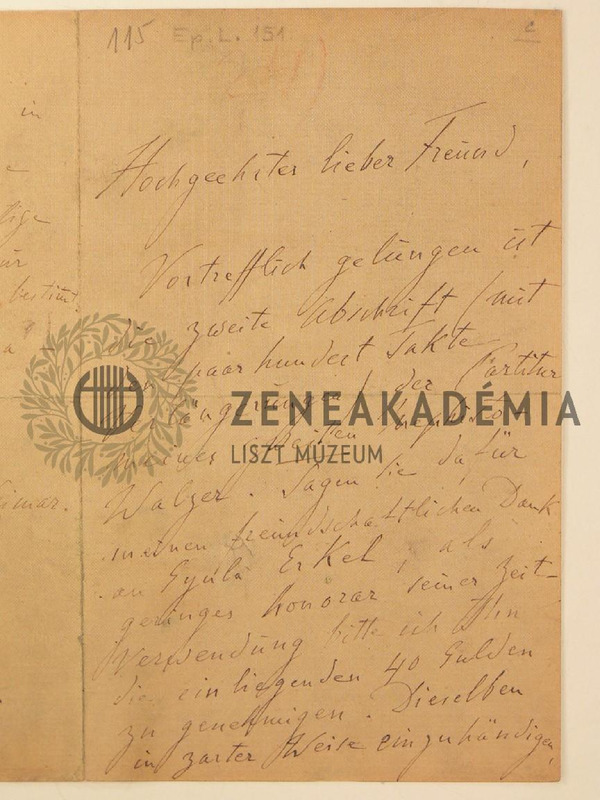 115 Ep. L. 151
Hochgeehrter lieber Freund,
Vortrefflich gelungen ist
die zweite Abschrift (mit
ein paar hundert Takte
Verlängerungen) der Partitur
meines zweiten Mephisto
Walzer. Sagen Sie dafür
meinen freundschaftlichen Dank
an Gyula Erkel, als
geringes honorar seiner Zeit-
Verwendung bitte ich Ihn
die einliegenden 40 Gulden
zu genehmigen. Dieselben
in zarter Weise einzuhändigen,
in
lige
ür
bestimt
imar.
ZENEAKADÉMIA
LISZT MÚZEUM